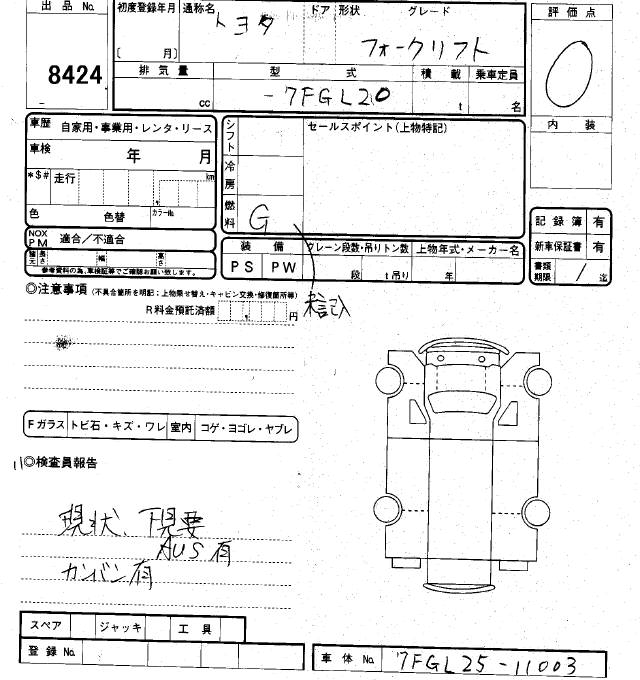 出品No. 初度登録年月 通称名 トヨタ ドア 形状 グレード 評価点
8424 〔 月〕 フォークリフト 0
排気量 型式 積載 乗車定員
cc -7FGL20 t 名 内装
車歴 自家用・事業用・レンタ・リース シフト セールスポイント(上物特記)
車検 年 月 冷房
*$# 走行 km
色 色替 カラーNo. 燃料 G 記録簿 有
NOX PM 適合/不適合 装備 クレーン段数・吊りトン数 上物年式・メーカー名 新車保証書 有
諸元 長さ 幅 高さ PS PW 段 t吊り 年 書類期限 / 迄
参考資料の為、車検証等でご確認お願い致します。
◎注意事項 (不具合箇所を明記;上物乗せ替え・キャビン交換・修復箇所等)
R料金預託済額 円 未記入
Fガラス トビ石・キズ・ワレ 室内 コゲ・ヨゴレ・ヤブレ
◎検査員報告
現状 下見要
AUS有
カンバン有
スペア ジャッキ 工具
登録No. 車体No. 7FGL25-11003